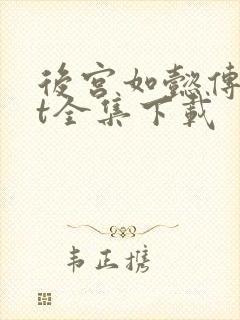 後宮如懿傳
t全集下載
韦正携